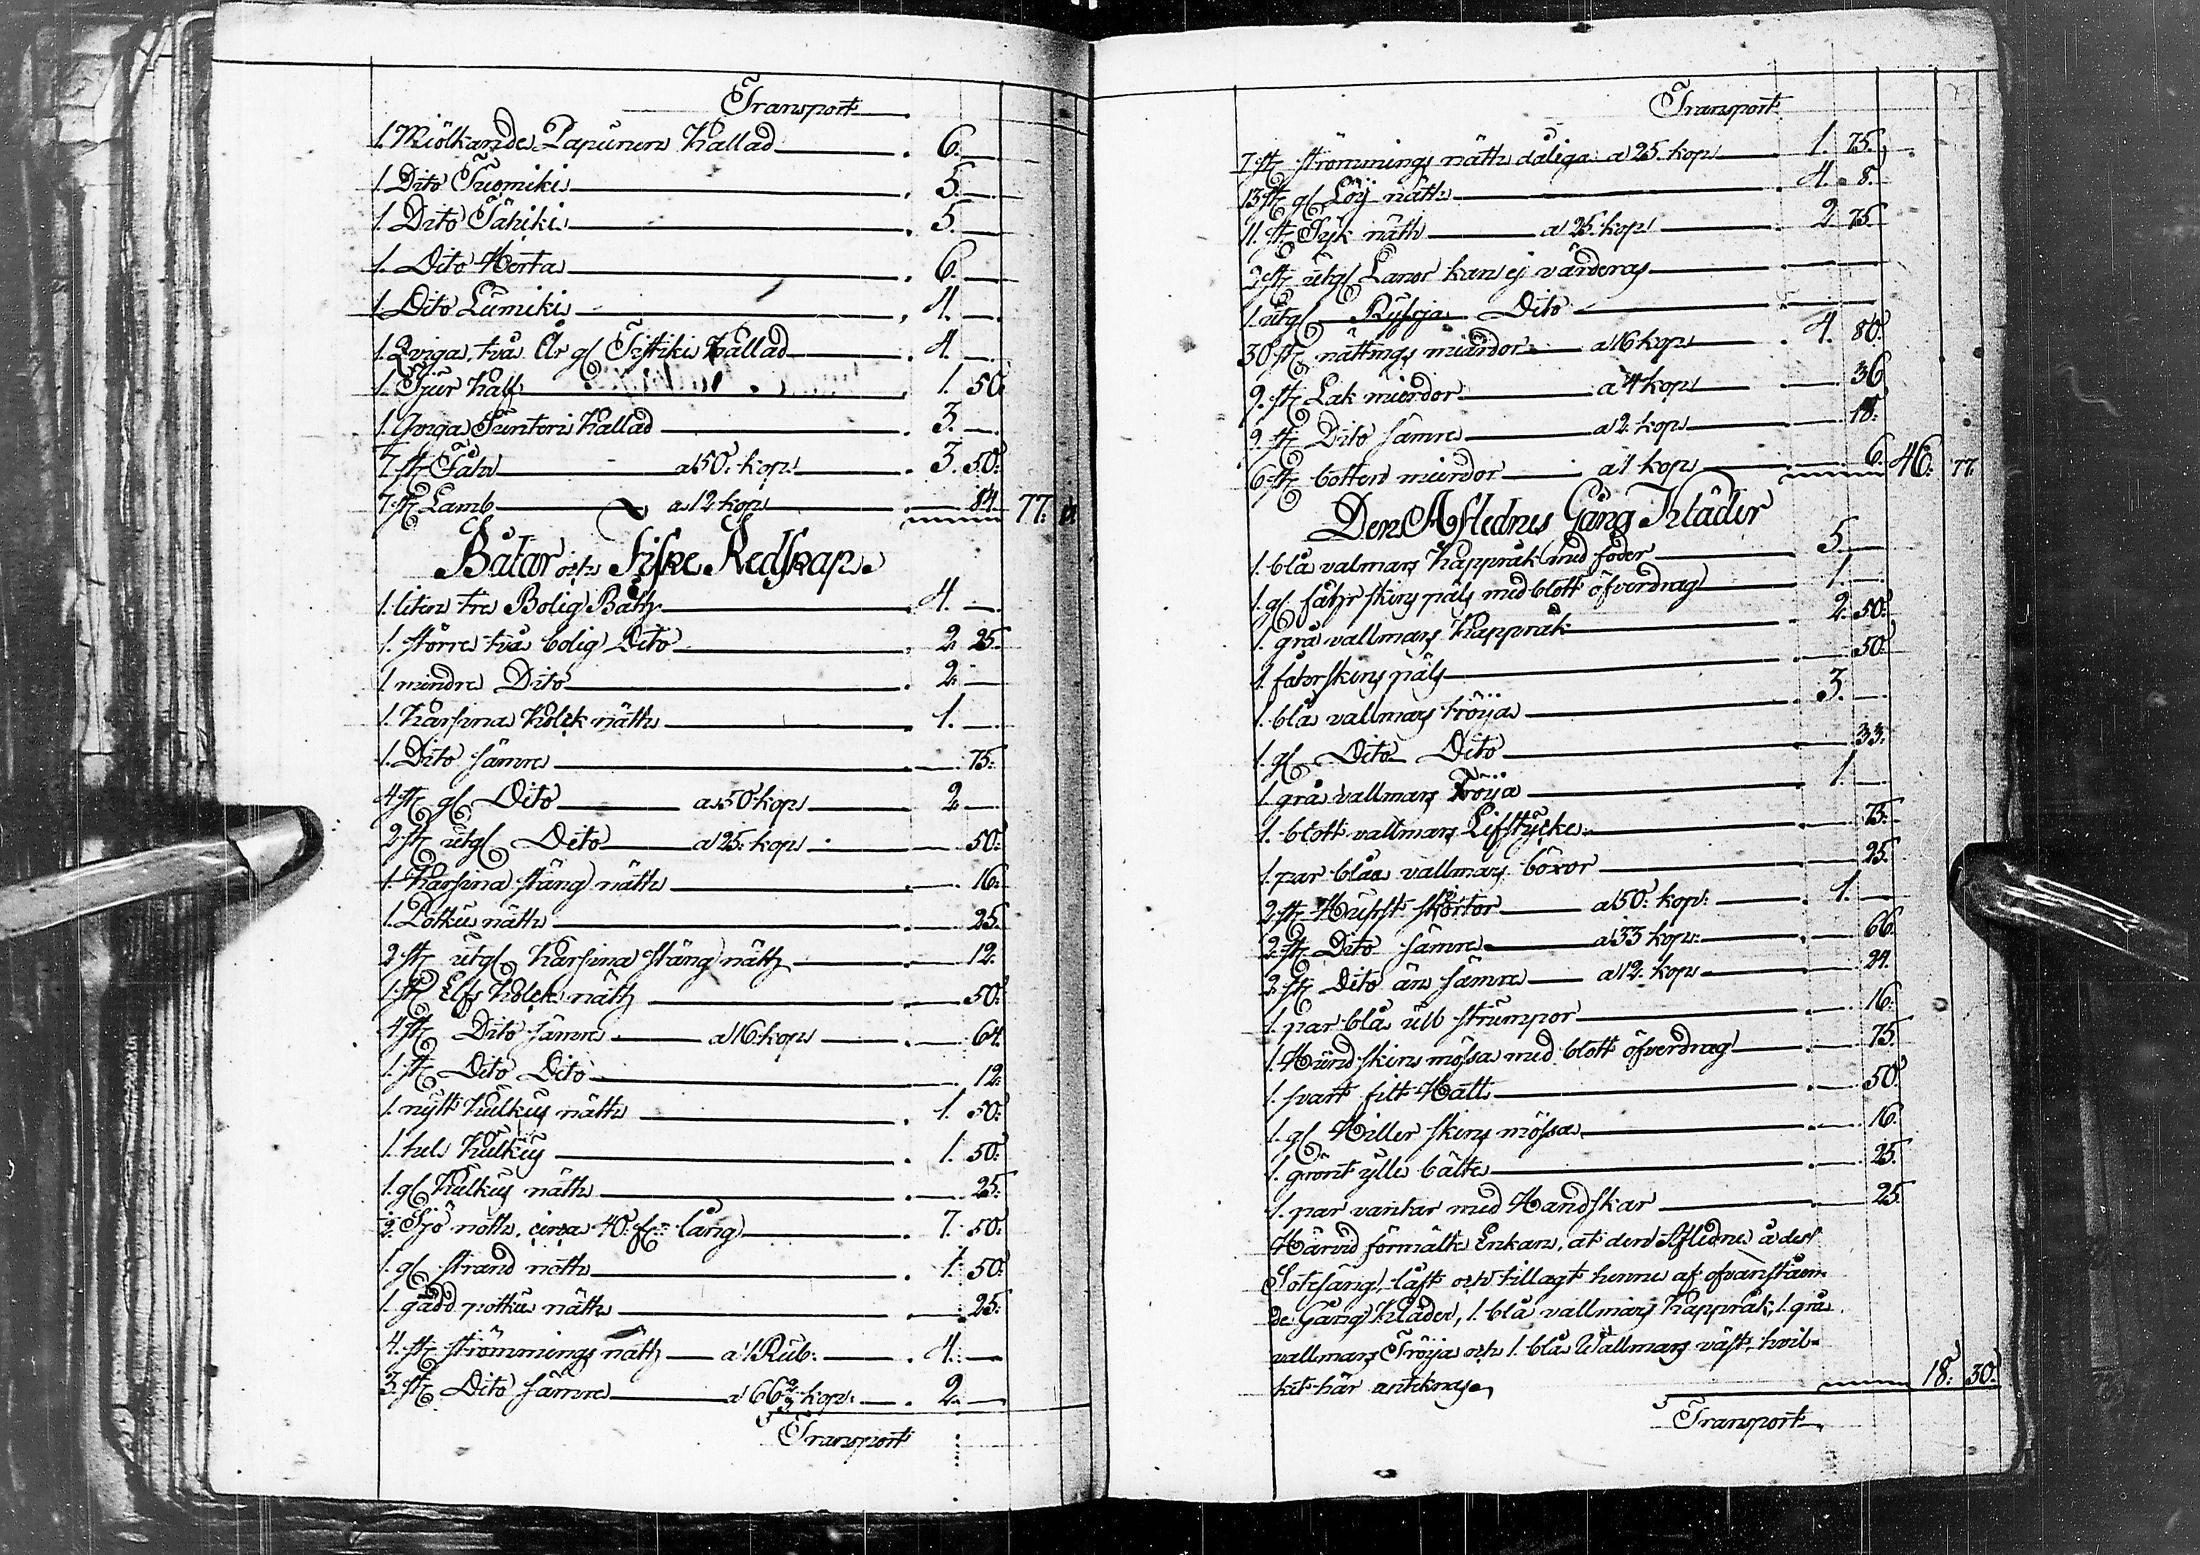 Transport
1. Miölkande Papunen Kallad 6. —
1. Dito Tuomiki 5. —
1. Dito Tähiki 5. —
1. Dito Herta 6. —
1. Dito Lumiki 4. —
1. Qviga, två År gl Tistiki Kallad 4. —
1. Tjur Kalf 1. 50
1. Qviga Sunteri Kallad 3. —
7. st Fåhr a 50. kop. 3. 50.
7. st Lamb a 12 kop — 84 77.
Båtar och Fiske Redskap.
1. liten tre Bolig Båth 4. —
1. större två bolig Dito 2. 25
1 mindre Dito 2. —
1. Karsina Kolek näth 1. —
1. Dito sämre — 75.
4. st gl Dito a 50 kop 2 —
2. st utgl Dito a 25. kop — 50.
1. Karsina stäng näth — 16.
1. Potku näth — 25.
2. st utgl Karsina stäng näth — 12.
1. st Elfs Kolek näth — 50.
4. st Dito sämre a 16. kop — 64.
1. st Dito Dito — 12.
1. nytt Kulkus näth 1. 50.
1. hel Kulkus 1. 50.
1. gl Kulkus näth — 25.
2. Sjö noth, circa 40. f lång 7. 50.
1. gl strand noth 1. 50.
1. gädd potku näth — 25.
4. st strömmings näth a 1 Rub. 4. —
3. st Dito sämre a 66 2/3 kop. 2. —
Transport
Transport
7. st strömmings näth dåliga a 25. kop 1. 75.
13 st gl Löÿ näth 4. 8.
11. st Syk näth a 25. kop 2. 75
2. st utgl Lanor kan ej värderas —
1. utgl Ryssja Dito —
30 st nättings mierdor a 16 kop 4. 80.
9. st Lak mierdor a 4 kop — 36
9. st Dito sämre a 2 kop — 18.
6. st botten mierdor a 1 kop — 6. 46. 77.
Den Aflednes Gång Kläder
1. blå valmars Kappråk med foder 5. —
1. gl fåhr skins päls med blott öfverdrag 1. —
1. grå vallmars Kappråk 2. 50.
1. fåhrskins päls — 50.
1. blå vallmars tröija 3. —
1. gl Dito Dito — 33.
1 grå vallmars Tröija 1. —
1. blott vallmars Lifstÿcke — 75.
1. par blåa vallmars böxor — 25.
2. st skortor a 50. kop. 1. —
2. st Dito sämre a 33 kop. — 66.
2. st Dito än sämre a 12. kop — 24.
1. par blå ull strumpor — 16.
1. Hund skins mössa med blott öfverdrag — 75.
1. svart filt Hatt — 50.
1. gl Hiller skins mössa — 16.
1. grönt ÿlle bälte — 25.
1. par vantar med Handskar — 25
Härvid förmälte Enkan, at den Aflidne å dess
Sotesäng, låft och tillagt henne af ofvanståen-
de Gång Kläder, 1. blå vallmars Kappråk, 1 grå
vallmars Tröija och 1. blå Wallmars väst, hvil-
ket här anteknas 18. 30.
Transport